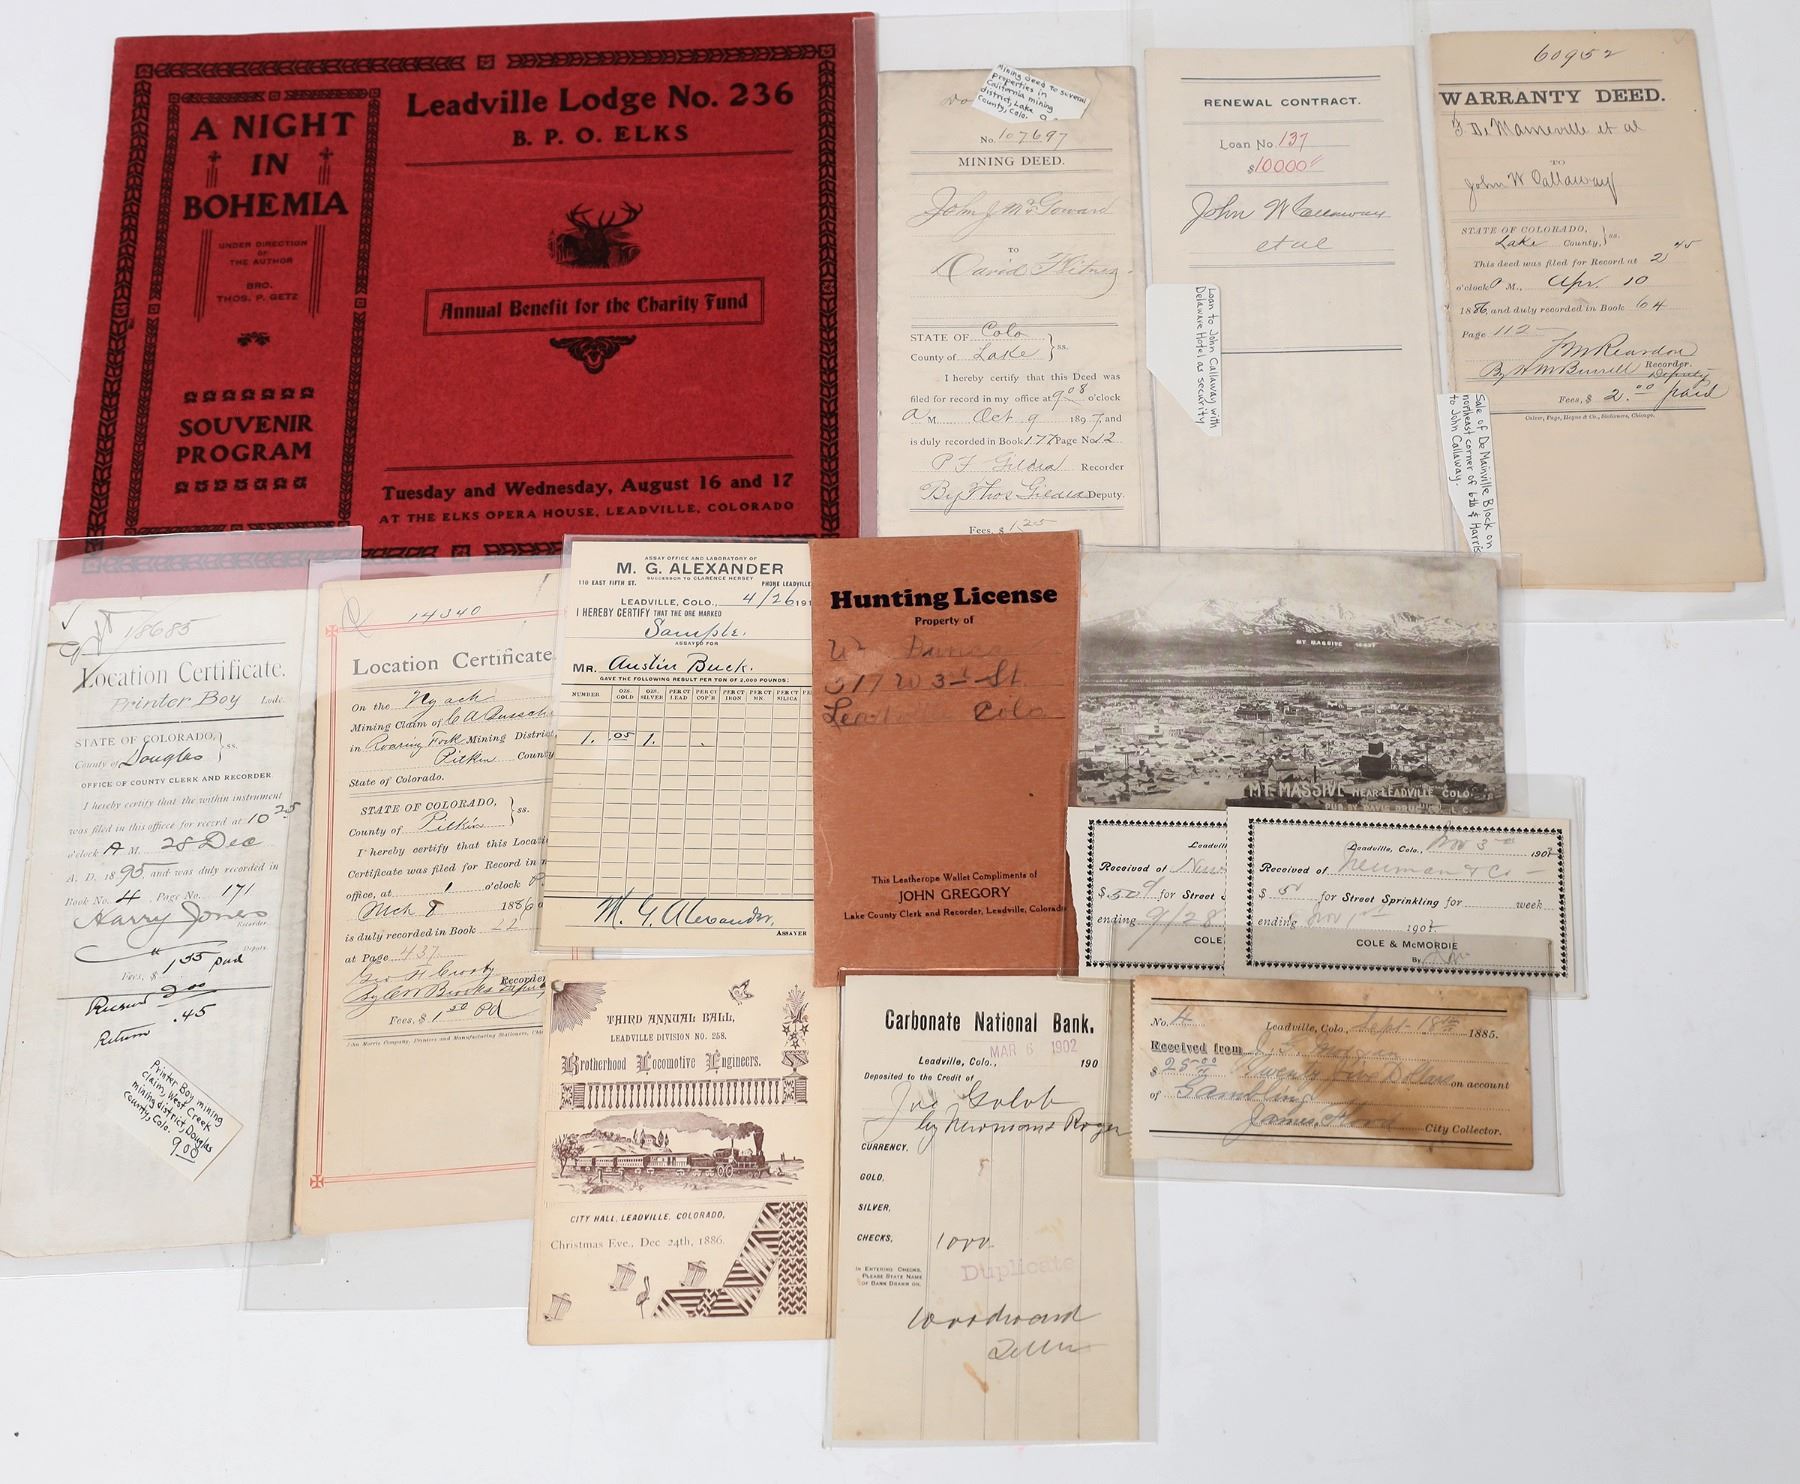 A NIGHT
IN
BOHEMIA
UNDER DIRECTION
OF
THE AUTHOR
BRO.
THOS. P. GETZ
SOUVENIR
PROGRAM
Leadville Lodge No. 236
B. P. O. ELKS
Annual Benefit for the Charity Fund
Tuesday and Wednesday, August 16 and 17
AT THE ELKS OPERA HOUSE, LEADVILLE, COLORADO
Mining deed to several
properties in
California mining
district, Lake
County, Colo.
No. 107697
MINING DEED.
John J McGowand
TO
David
STATE OF Colo
County of Lake ss.
I hereby certify that this Deed was
filed for record in my office at 9 08 o'clock
A M. Oct. 9 1897, and
is duly recorded in Book 177 Page No. 12
P F Gildea Recorder
By Thos Gildea Deputy.
Fees, $ 1.25
RENEWAL CONTRACT.
Loan No. 137
$10000
John W Callaway
et al
Loan to John Callaway with
Delaware Hotel as security
60952
WARRANTY DEED.
F. De Maineville et al
TO
John W Callaway
STATE OF COLORADO,
Lake County, ss.
This deed was filed for Record at 2 45
o'clock P M., Apr. 10
1886, and duly recorded in Book 64
Page 112
Reardon
Recorder.
By H M Burrell Deputy
Fees, $ 2.00 paid
Culver, Page, Hoyne & Co., Stationers, Chicago.
Sale of De Mainville Block on
northeast corner of 6th & Harris
to John Callaway.
18685
Location Certificate.
Printer Boy Lode.
STATE OF COLORADO,
County of Douglas ss.
OFFICE OF COUNTY CLERK AND RECORDER
I hereby certify that the within instrument
was filed in this office for record at 10 25
o'clock A M. 28 Dec
A. D. 1895 and was duly recorded in
Book No. 4 Page No. 171
Harry Jones
Recorder.
Deputy.
Fees, $ 1.55 paid
Received 2.00
Return .45
Printer Boy mining
claim, West Creek
mining district, Douglas
County, Colo.
9.00
14340
Location Certificate.
On the Nyack
Mining Claim of C A
in Roaring Fork Mining District,
Pitkin County
State of Colorado.
STATE OF COLORADO,
County of Pitkin ss.
I hereby certify that this Locati
Certificate was filed for Record in m
office, at 1 o'clock P
Mch 8 1886
is duly recorded in Book 22
at Page 437
Geo H Crosby
Recorder
By C W Brooks Deputy
Fees, $ 1.50 Pd
ASSAY OFFICE AND LABORATORY OF
M. G. ALEXANDER
SUCCESSOR TO CLARENCE HERSEY
110 EAST FIFTH ST. PHONE LEADVILLE
LEADVILLE, COLO., 4/26 191
I HEREBY CERTIFY THAT THE ORE MARKED
Sample.
ASSAYED FOR
MR. Austin Buck.
GAVE THE FOLLOWING RESULT PER TON OF 2,000 POUNDS:
NUMBER OZS. GOLD OZS. SILVER PER CT LEAD PER CT COP'R PER CT IRON PER CT MN. PER CT SILICA PE
1. .05 1.
M. G. Alexander,
ASSAYER
Hunting License
Property of
517 W 3rd St.
Lead Colo
This Leatherope Wallet Compliments of
JOHN GREGORY
Lake County Clerk and Recorder, Leadville, Colorado
MT MASSIVE 14427
MT. MASSIVE NEAR LEADVILLE COLO.
PUB. BY DAVIS DRUG CO. L.C.
Leadvill
Received of New
$ 50 for Street S
ending 9/28
COLE
Leadville, Colo., Nov 3rd 1902
Received of Newman & Co
$ 50 for Street Sprinkling for week
ending Nov 1st 190
COLE & McMORDIE
By
THIRD ANNUAL BALL,
LEADVILLE DIVISION NO. 258,
Brotherhood Locomotive Engineers.
CITY HALL, LEADVILLE, COLORADO,
Christmas Eve., Dec 24th, 1886.
Carbonate National Bank.
MAR 6 1902
Leadville, Colo., 190
Deposited to the Credit of
Joe Golob
by Newmans Roger
CURRENCY,
GOLD,
SILVER,
CHECKS, 1000
IN ENTERING CHECKS,
PLEASE STATE NAME
OF BANK DRAWN ON.
Duplicate
Woodward
No. 4 Leadville, Colo., Sept 18th 1885.
Received from J. G. Morgan
$ 25.00 Twenty five Dollars on account
of Gambling
James Flood City Collector.